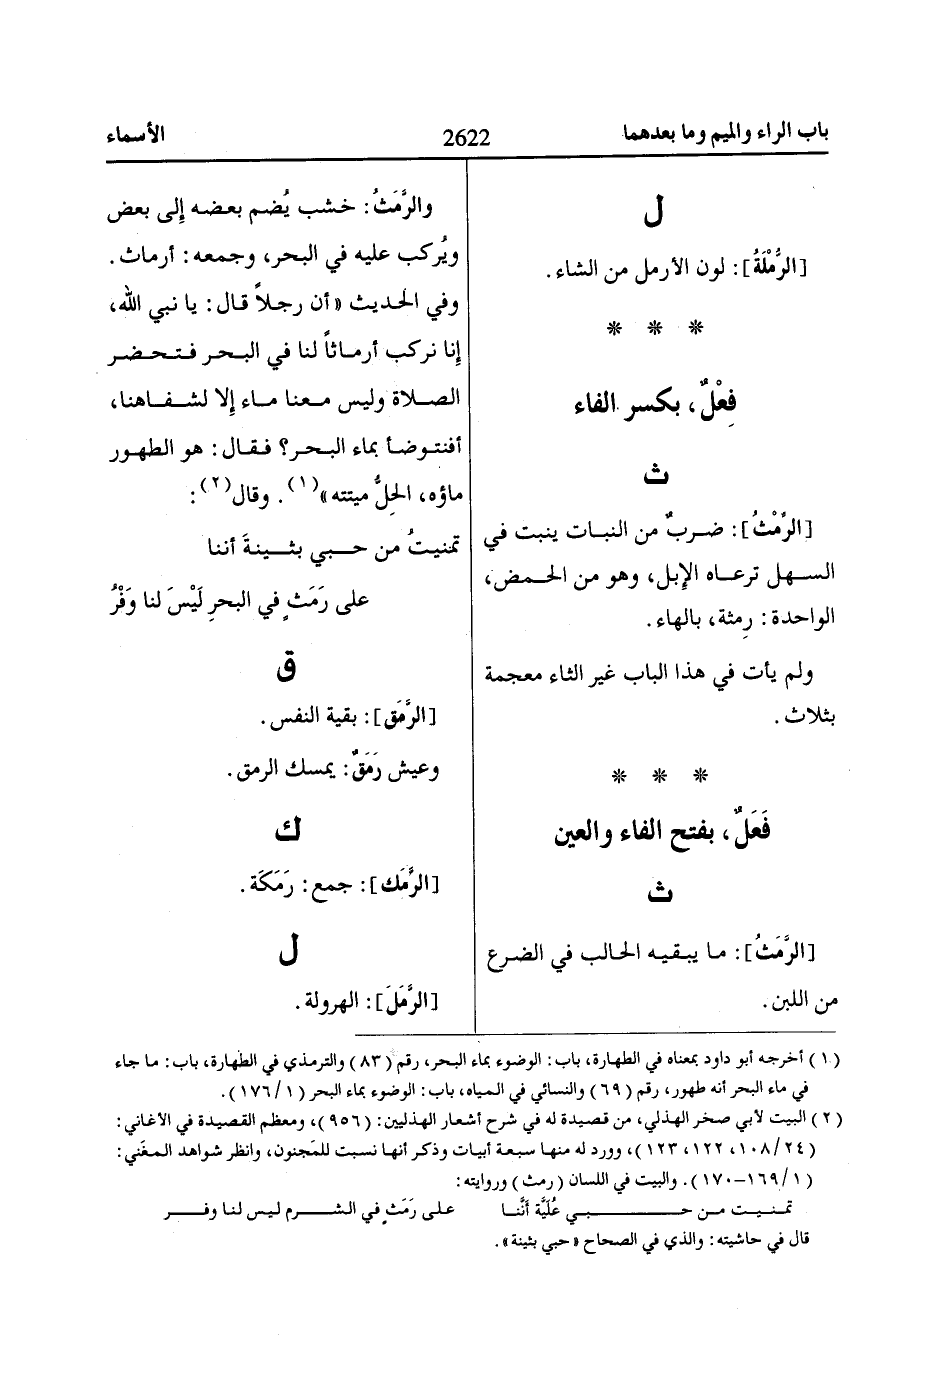 باب الراء والميم وما بعدهما
2622
الأسماء
ل
[الرُّمْلَةُ]: لون الأرمل من الشاء.
* * *
فِعْلٌ، بكسر الفاء
ث
[الرِّمْثُ]: ضربٌ من النبات ينبت في
السهل ترعاه الإبل، وهو من الحمض،
الواحدة: رِمثة، بالهاء.
ولم يأت في هذا الباب غير الثاء معجمة
بثلاث.
* * *
فَعَلٌ، بفتح الفاء والعين
ث
[الرَّمَثُ]: ما يبقيه الحالب في الضرع
من اللبن.
والرَّمَثُ: خشب يُضم بعضه إلى بعض
ويُركب عليه في البحر، وجمعه: أرماث.
وفي الحديث «أن رجلاً قال: يا نبي الله،
إنا نركب أرماثاً لنا في البحر فتحضر
الصلاة وليس معنا ماء إلا لشفاهنا،
أفنتوضأ بماء البحر؟ فقال: هو الطهور
ماؤه، الحلُّ ميتته»(١). وقال(٢):
تمنيتُ من حبي بثينةَ أننا
على رَمَثٍ في البحرِ لَيْسَ لنا وَفْرُ
ق
[الرَّمَق]: بقية النفس.
وعيش رَمَقٌ: يمسك الرمق.
ك
[الرَّمَك]: جمع: رَمَكَة.
ل
[الرَّمَلَ]: الهرولة.
(١) أخرجه أبو داود بمعناه في الطهارة، باب: الوضوء بماء البحر، رقم (٨٣) والترمذي في الطهارة، باب: ما جاء
في ماء البحر أنه طهور، رقم (٦٩) والنسائي في المياه، باب: الوضوء بماء البحر (١/١٧٦).
(٢) البيت لأبي صخر الهذلي، من قصيدة له في شرح أشعار الهذليين: (٩٥٦)، ومعظم القصيدة في الأغاني:
(٢٤/١٠٨، ١٢٢، ١٢٣)، وورد له منها سبعة أبيات وذكر أنها نسبت للمَجنون، وانظر شواهد المغَني:
(١/١٦٩-١٧٠). والبيت في اللسان (رمث) وروايته:
تمنيت من حبي عُلَيَّة أَنَّنا على رَمَثٍ في الشرم ليس لنا وفر
قال في حاشيته: والذي في الصحاح «حبي بثينة».